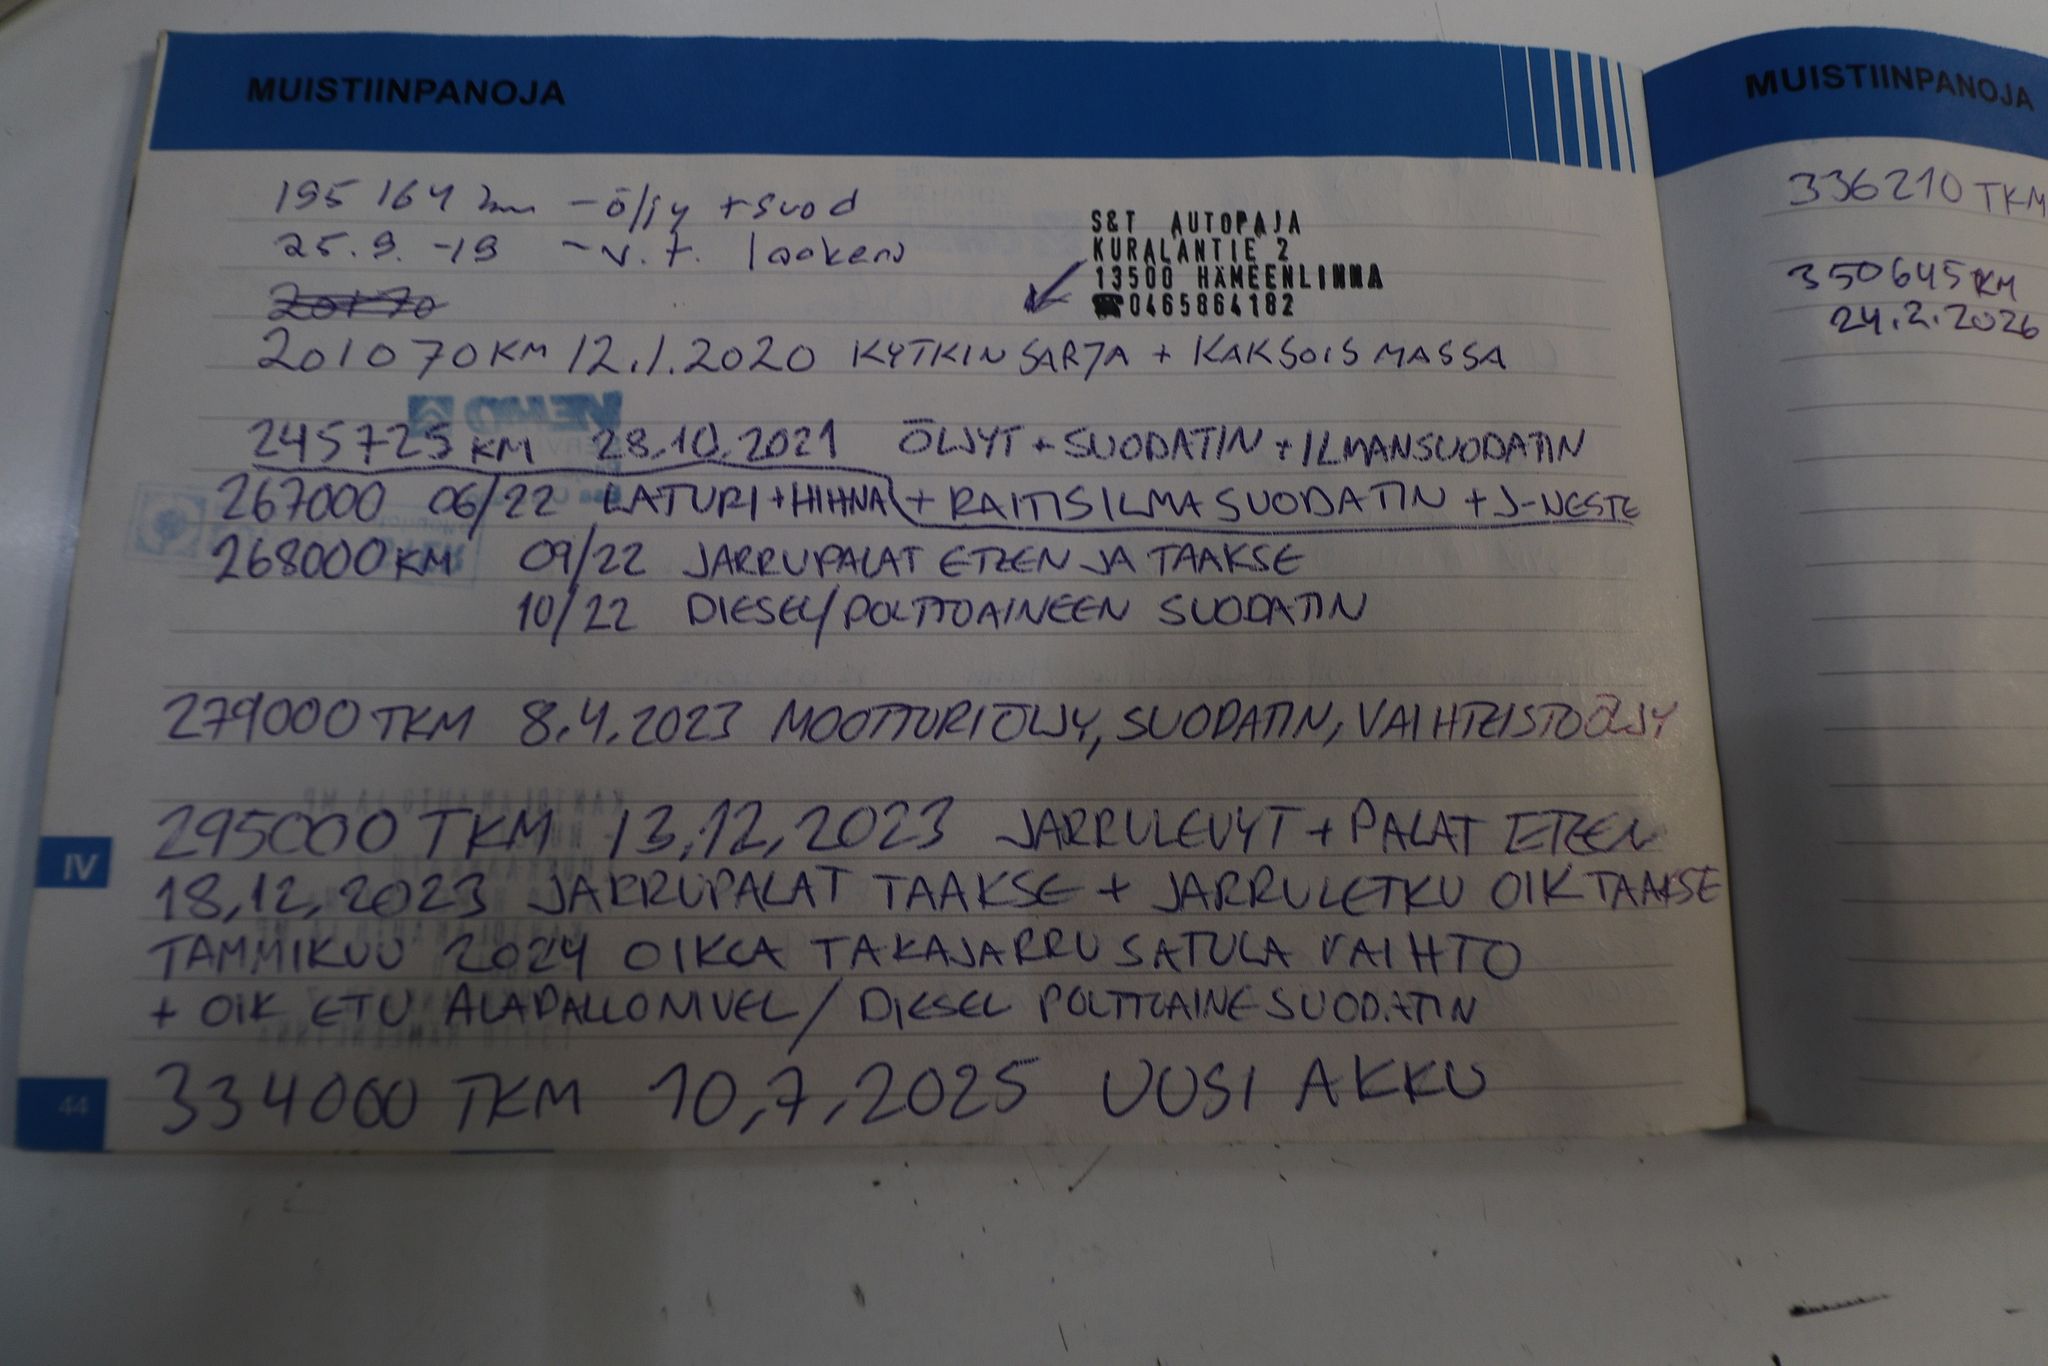 MUISTIINPANOJA
195 164 km - öljy + suod
25.9.-19 - v.t. laakeri
S&T AUTOPAJA
KURALANTIE 2
13500 HÄMEENLINNA
☎0465864182
201070 KM 12.1.2020 KYTKINSARJA + KAKSOISMASSA
245725 KM 28.10.2021 ÖLJYT + SUODATIN + ILMANSUODATIN
267000 06/22 LATURI + HIHNA + RAITISILMASUODATIN + J-NESTE
268000 KM 09/22 JARRUPALAT ETEEN JA TAAKSE
10/22 DIESEL/POLTTOAINEEN SUODATIN
279000 TKM 8.4.2023 MOOTTORIÖLJY, SUODATIN, VAIHTEISTOÖLJY
295000 TKM 13,12,2023 JARRULEVYT + PALAT ETEEN
18,12,2023 JARRUPALAT TAAKSE + JARRULETKU OIK TAAKSE
TAMMIKUU 2024 OIKEA TAKAJARRUSATULA VAIHTO
+ OIK ETU ALAPALLONIVEL / DIESEL POLTTOAINESUODATIN
334000 TKM 10,7,2025 UUSI AKKU
IV
44
MUISTIINPANOJA
336210 TKM
350645 KM
24.2.2026